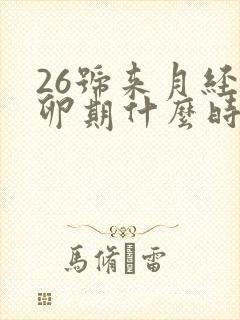 26號来月经
卵期什麼時
馬脩 雷